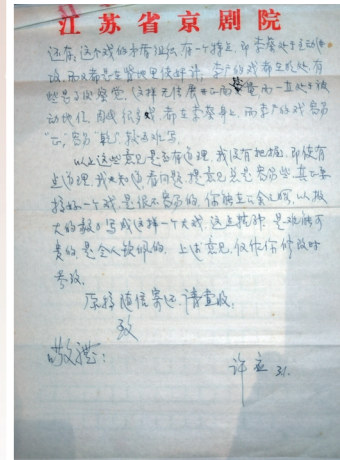 江苏省京剧院
还奇。这个戏的矛盾组织有一个特点,即李蔡处于主动进
攻,而又都是在紧地里使诡计。李广的戏都在明处,有
些是
动地位。因戏很多 都在蔡身上,而李广的戏容易
“正”,容易“乾”,较为难写。
以上这些意见是否有道理,我没有把握。即使有
些道理,我也知道看问题、提意见总是容易些,真正要
搞好一个戏,是很不容易的。你能在公余之暇,以极
大的毅力写成这样一个大戏,这点精神,是难能可
贵的,是令人钦佩的。上述意见,仅作你修改时
参考。
原稿随信寄还,请查收。
致
敬礼!
许 31.